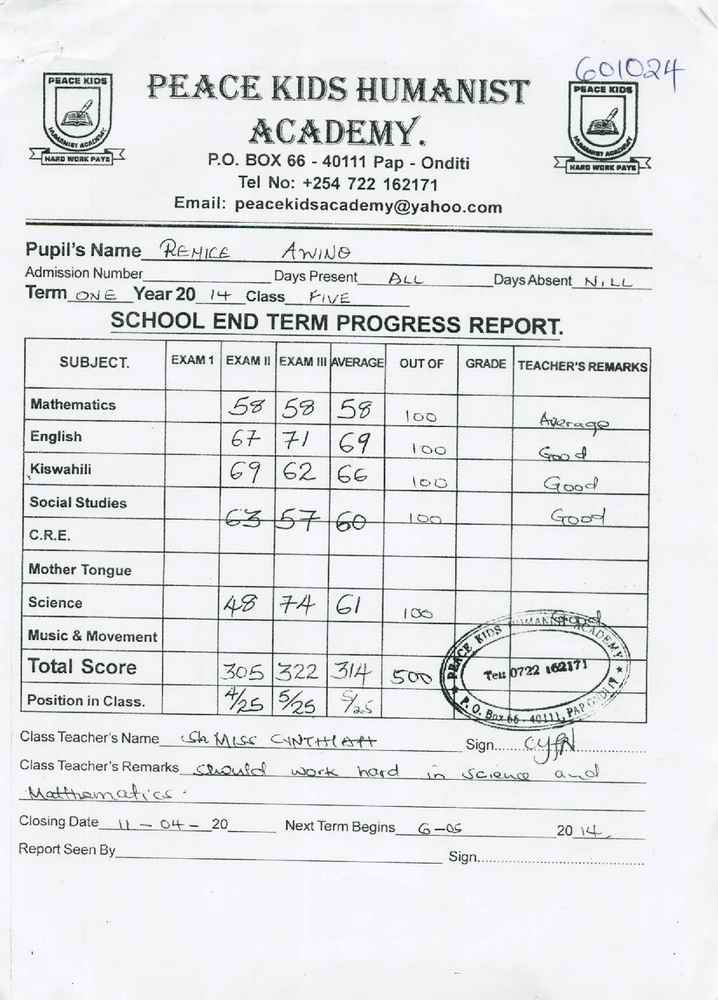 601024
PEACE KIDS
HUMANIST ACADEMY
HARD WORK PAYS
PEACE KIDS HUMANIST
ACADEMY.
P.O. BOX 66 - 40111 Pap - Onditi
Tel No: +254 722 162171
Email: peacekidsacademy@yahoo.com
PEACE KIDS
HUMANIST ACADEMY
HARD WORK PAYS
Pupil's Name REMICE AWINO
Admission Number Days Present ALL Days Absent NILL
Term ONE Year 20 14 Class FIVE
SCHOOL END TERM PROGRESS REPORT.
SUBJECT. EXAM 1 EXAM II EXAM III AVERAGE OUT OF GRADE TEACHER'S REMARKS
Mathematics 58 58 58 100 Average
English 67 71 69 100 Good
Kiswahili 69 62 66 100 Good
Social Studies 63 57 60 100 Good
C.R.E.
Mother Tongue
Science 48 74 61 100 Good
Music & Movement
Total Score 305 322 314 500
Position in Class. 4/25 5/25 5/25
PEACE KIDS HUMANIST ACADEMY
Tel: 0722 162171
P.O. Box 66 - 40111, PAP ONDITI
Class Teacher's Name MISS CYNTHIA Sign
Class Teacher's Remarks Should work hard in science and
Matthematics.
Closing Date 11 - 04 - 20 Next Term Begins 6-05 20 14
Report Seen By Sign